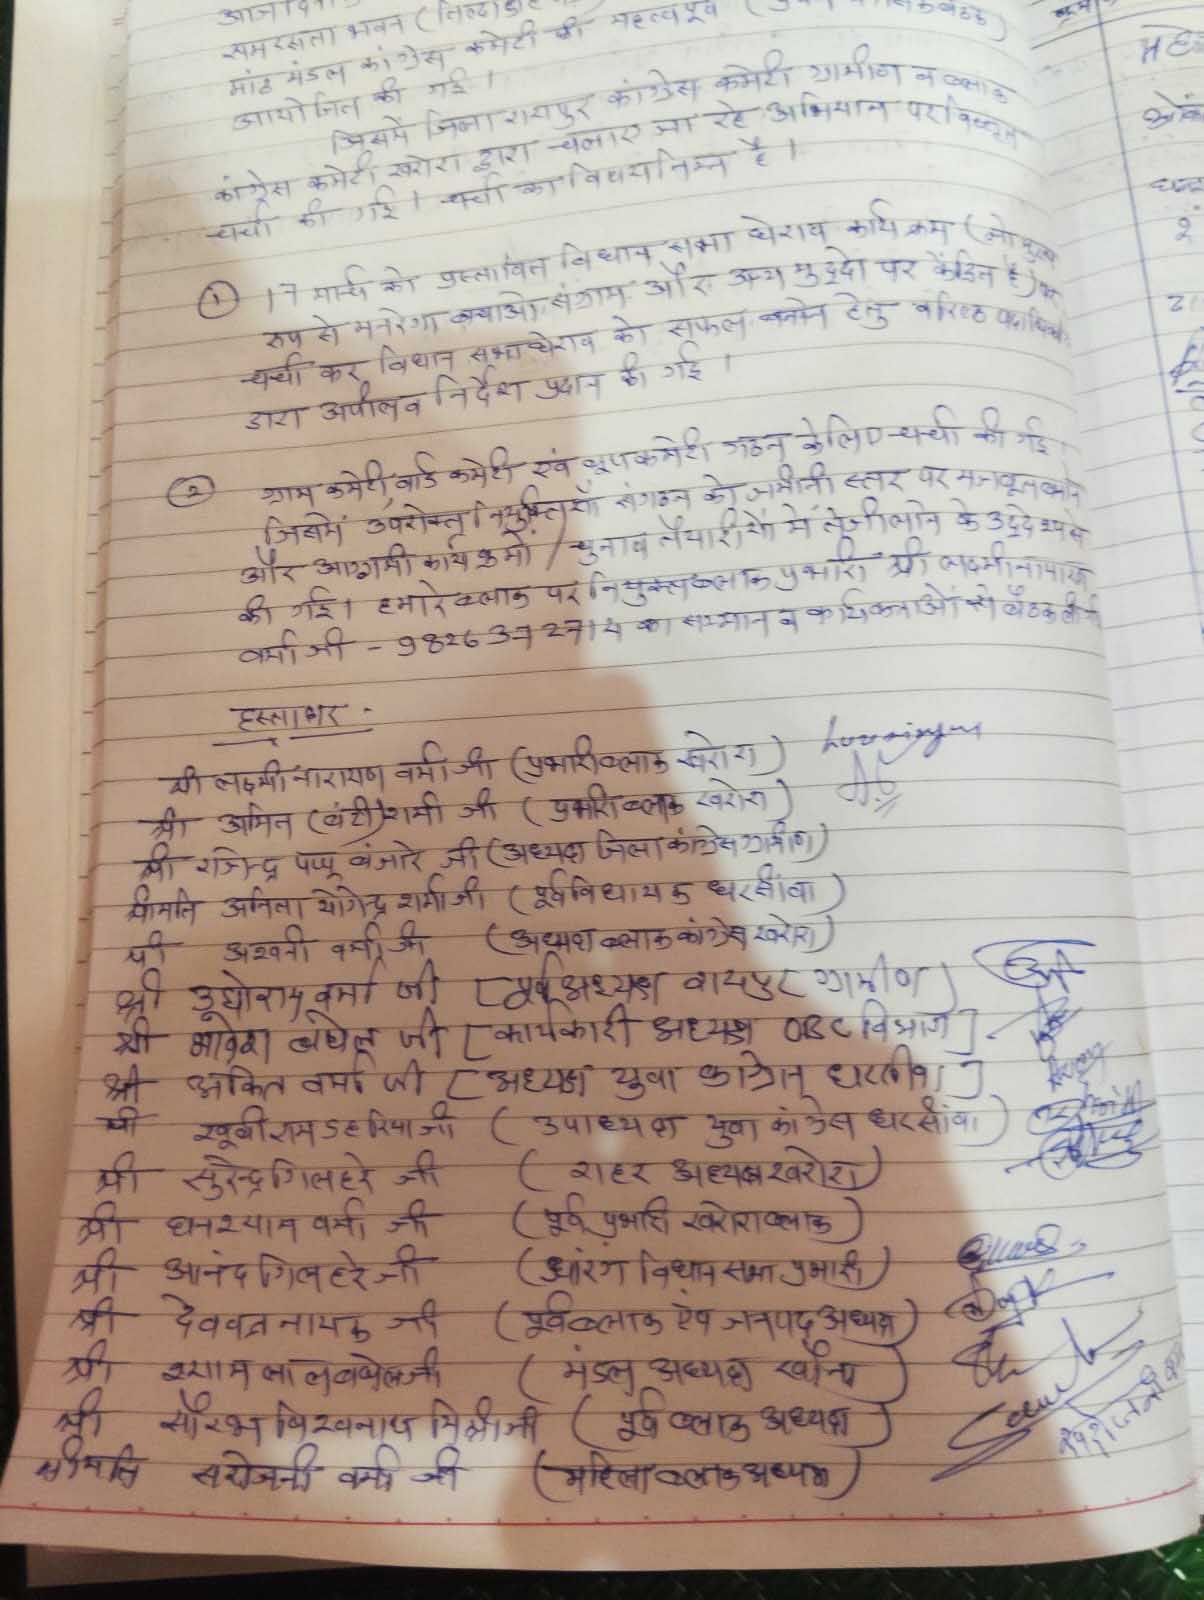 समरसता भवन
मांठ मंडल कांग्रेस कमेटी की महत्वपूर्ण
आयोजित की गई।
जिसमें जिला रायपुर कांग्रेस कमेटी ग्रामीण व ब्लाक
कांग्रेस कमेटी खरोरा द्वारा चलाए जा रहे अभियान पर विस्तृत
चर्चा की गई। चर्चा का विषय निम्न है।
① 17 मार्च को प्रस्तावित विधान सभा घेराव कार्यक्रम (जो मुख्य
रूप से मनरेगा बचाओ संग्राम और अन्य मुद्दो पर केंद्रित है) पर
चर्चा कर विधान सभा घेराव को सफल बनाने हेतु वरिष्ठ
द्वारा अपील व निर्देश प्रदान की गई।
② ग्राम कमेटी, वार्ड कमेटी एवं बूथ कमेटी गठन के लिए चर्चा की गई।
जिसमें उपरोक्त नियुक्तियाँ संगठन को जमीनी स्तर पर मजबूत बनाने
और आगामी कार्यक्रमों / चुनाव तैयारीयों में तेजी लाने के उद्देश्य से
की गई। हमारे ब्लाक पर नियुक्त ब्लाक प्रभारी श्री लक्ष्मीनारायण
वर्मा जी - 9826372714 का सम्मान व कार्यकर्ताओं से बैठक ली
हस्ताक्षर -
श्री लक्ष्मीनारायण वर्मा जी (प्रभारी ब्लाक खरोरा)
श्री अमित (बंटी) शर्मा जी (प्रभारी ब्लाक खरोरा)
श्री राजेन्द्र पप्पू बंजारे जी (अध्यक्ष जिला कांग्रेस ग्रामीण)
श्रीमति अनिता योगेन्द्र शर्मा जी (पूर्व विधायक धरसींवा)
श्री अश्वनी वर्मा जी (अध्यक्ष ब्लाक कांग्रेस खरोरा)
श्री उधोराम वर्मा जी [पूर्व अध्यक्ष रायपुर ग्रामीण]
श्री भावेश बघेल जी [कार्यकारी अध्यक्ष OBC विभाग]
श्री अंकित वर्मा जी [अध्यक्ष युवा कांग्रेस धरसींवा]
श्री खूबीराम डहरिया जी (उपाध्यक्ष युवा कांग्रेस धरसींवा)
श्री सुरेन्द्र गिलहरे जी (शहर अध्यक्ष खरोरा)
श्री घनश्याम वर्मा जी (पूर्व प्रभारी खरोरा ब्लाक)
श्री आनंद गिलहरे जी (आरंग विधान सभा प्रभारी)
श्री देवव्रत नायक जी (पूर्व ब्लाक एंव जनपद अध्यक्ष)
श्री श्याम लाल बघेल जी (मंडल अध्यक्ष)
श्री सौरभ विश्वनाथ मिश्रा जी (पूर्व ब्लाक अध्यक्ष)
श्रीमति सरोजनी वर्मा जी (महिला ब्लाक अध्यक्ष)